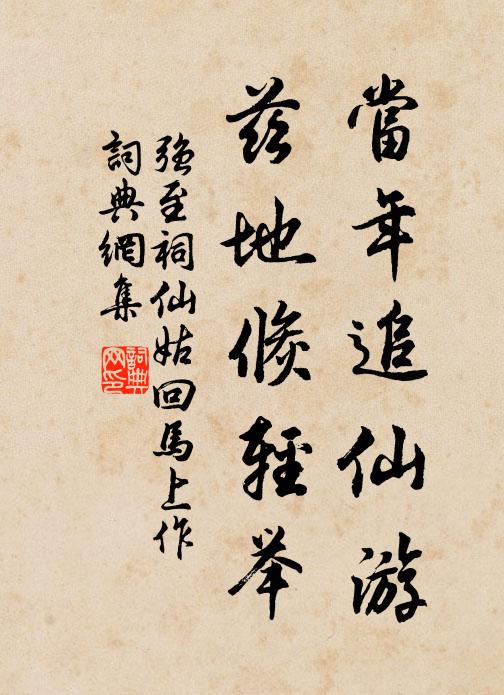 當年追仙游
茲地倏輕举
強至祠仙姑回馬上作
詞典網集
詞典网印